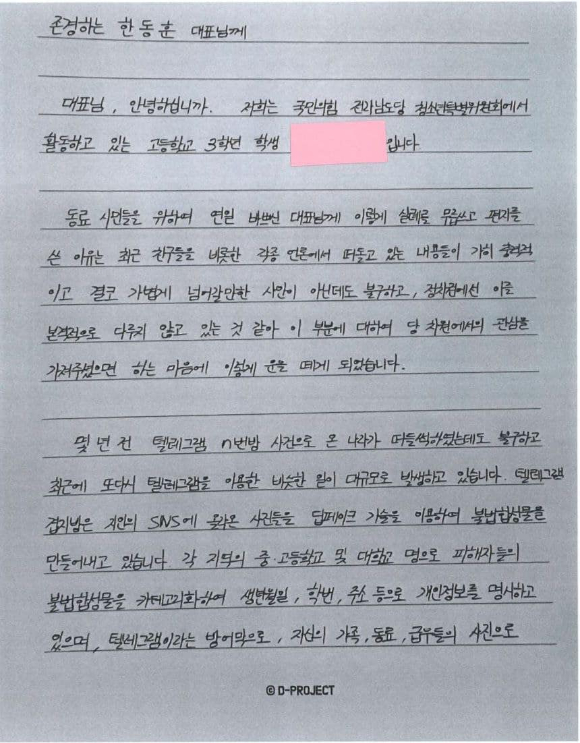 존경하는 한동훈 대표님께
대표님, 안녕하십니까. 저희는 국민의힘 전라남도당 청소년특별위원회에서
활동하고 있는 고등학교 3학년 학생 입니다
동료 시민들을 위하여 연일 바쁘신 대표님께 이렇게 실례를 무릅쓰고 편지를
쓴 이유는 최근 친구들을 비롯한 각종 언론에서 떠돌고 있는 내용들이 가히 충격적
이고 결코 가볍게 넘어갈만한 사안이 아닌데도 불구하고, 정치권에선 이를
본격적으로 다루지 않고 있는 것 같아 이 부분에 대하여 당 차원에서의 관심을
가져주셨으면 하는 마음에 이렇게 운을 떼게 되었습니다.
몇 년 전 텔레그램 n번방 사건으로 온 나라가 떠들썩하였는데도 불구하고
최근에 또다시 텔레그램을 이용한 비슷한 일이 대규모로 발생하고 있습니다. 텔레그램
겹지방은 지인의 SNS에 올라온 사진들을 딥페이크 기술을 이용하여 불법합성물을
만들어내고 있습니다. 각 지역의 중·고등학교 및 대학교 명으로 피해자들의
불법합성물을 카테고리화하여 생년월일, 학번, 주소 등으로 개인정보를 명시하고
있으며, 텔레그램이라는 방어막으로, 자신의 가족, 동료, 급우들의 사진으로
© D-PROJECT